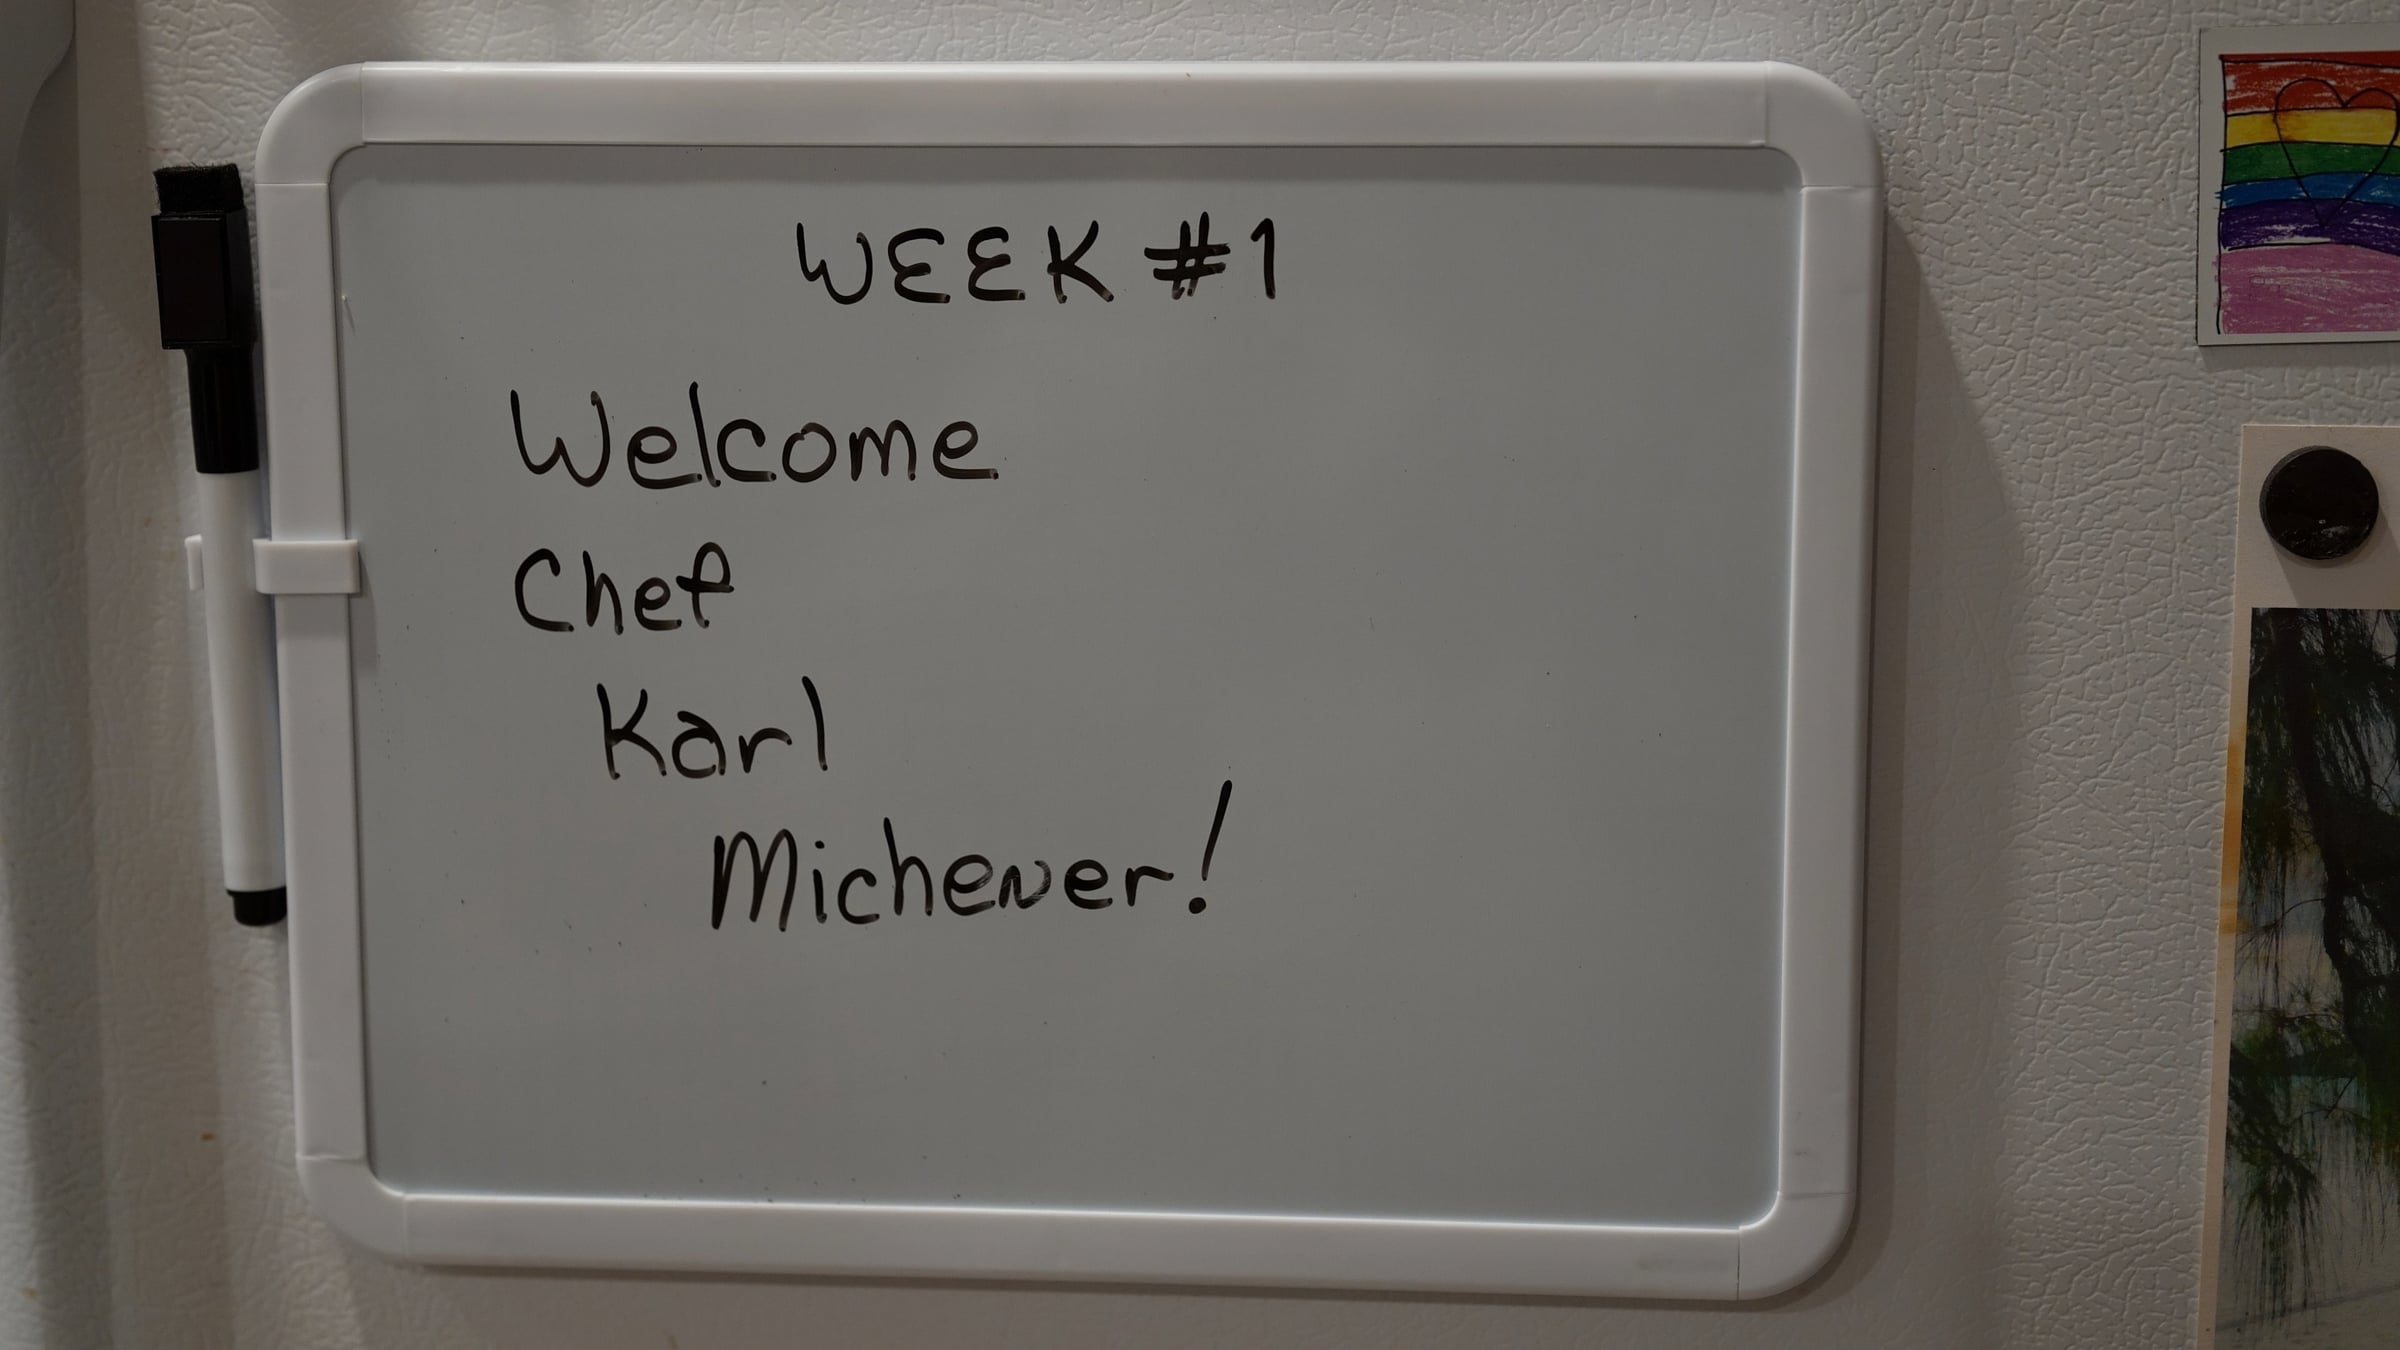 WEEK #1
Welcome
Chef
Karl
Michener!